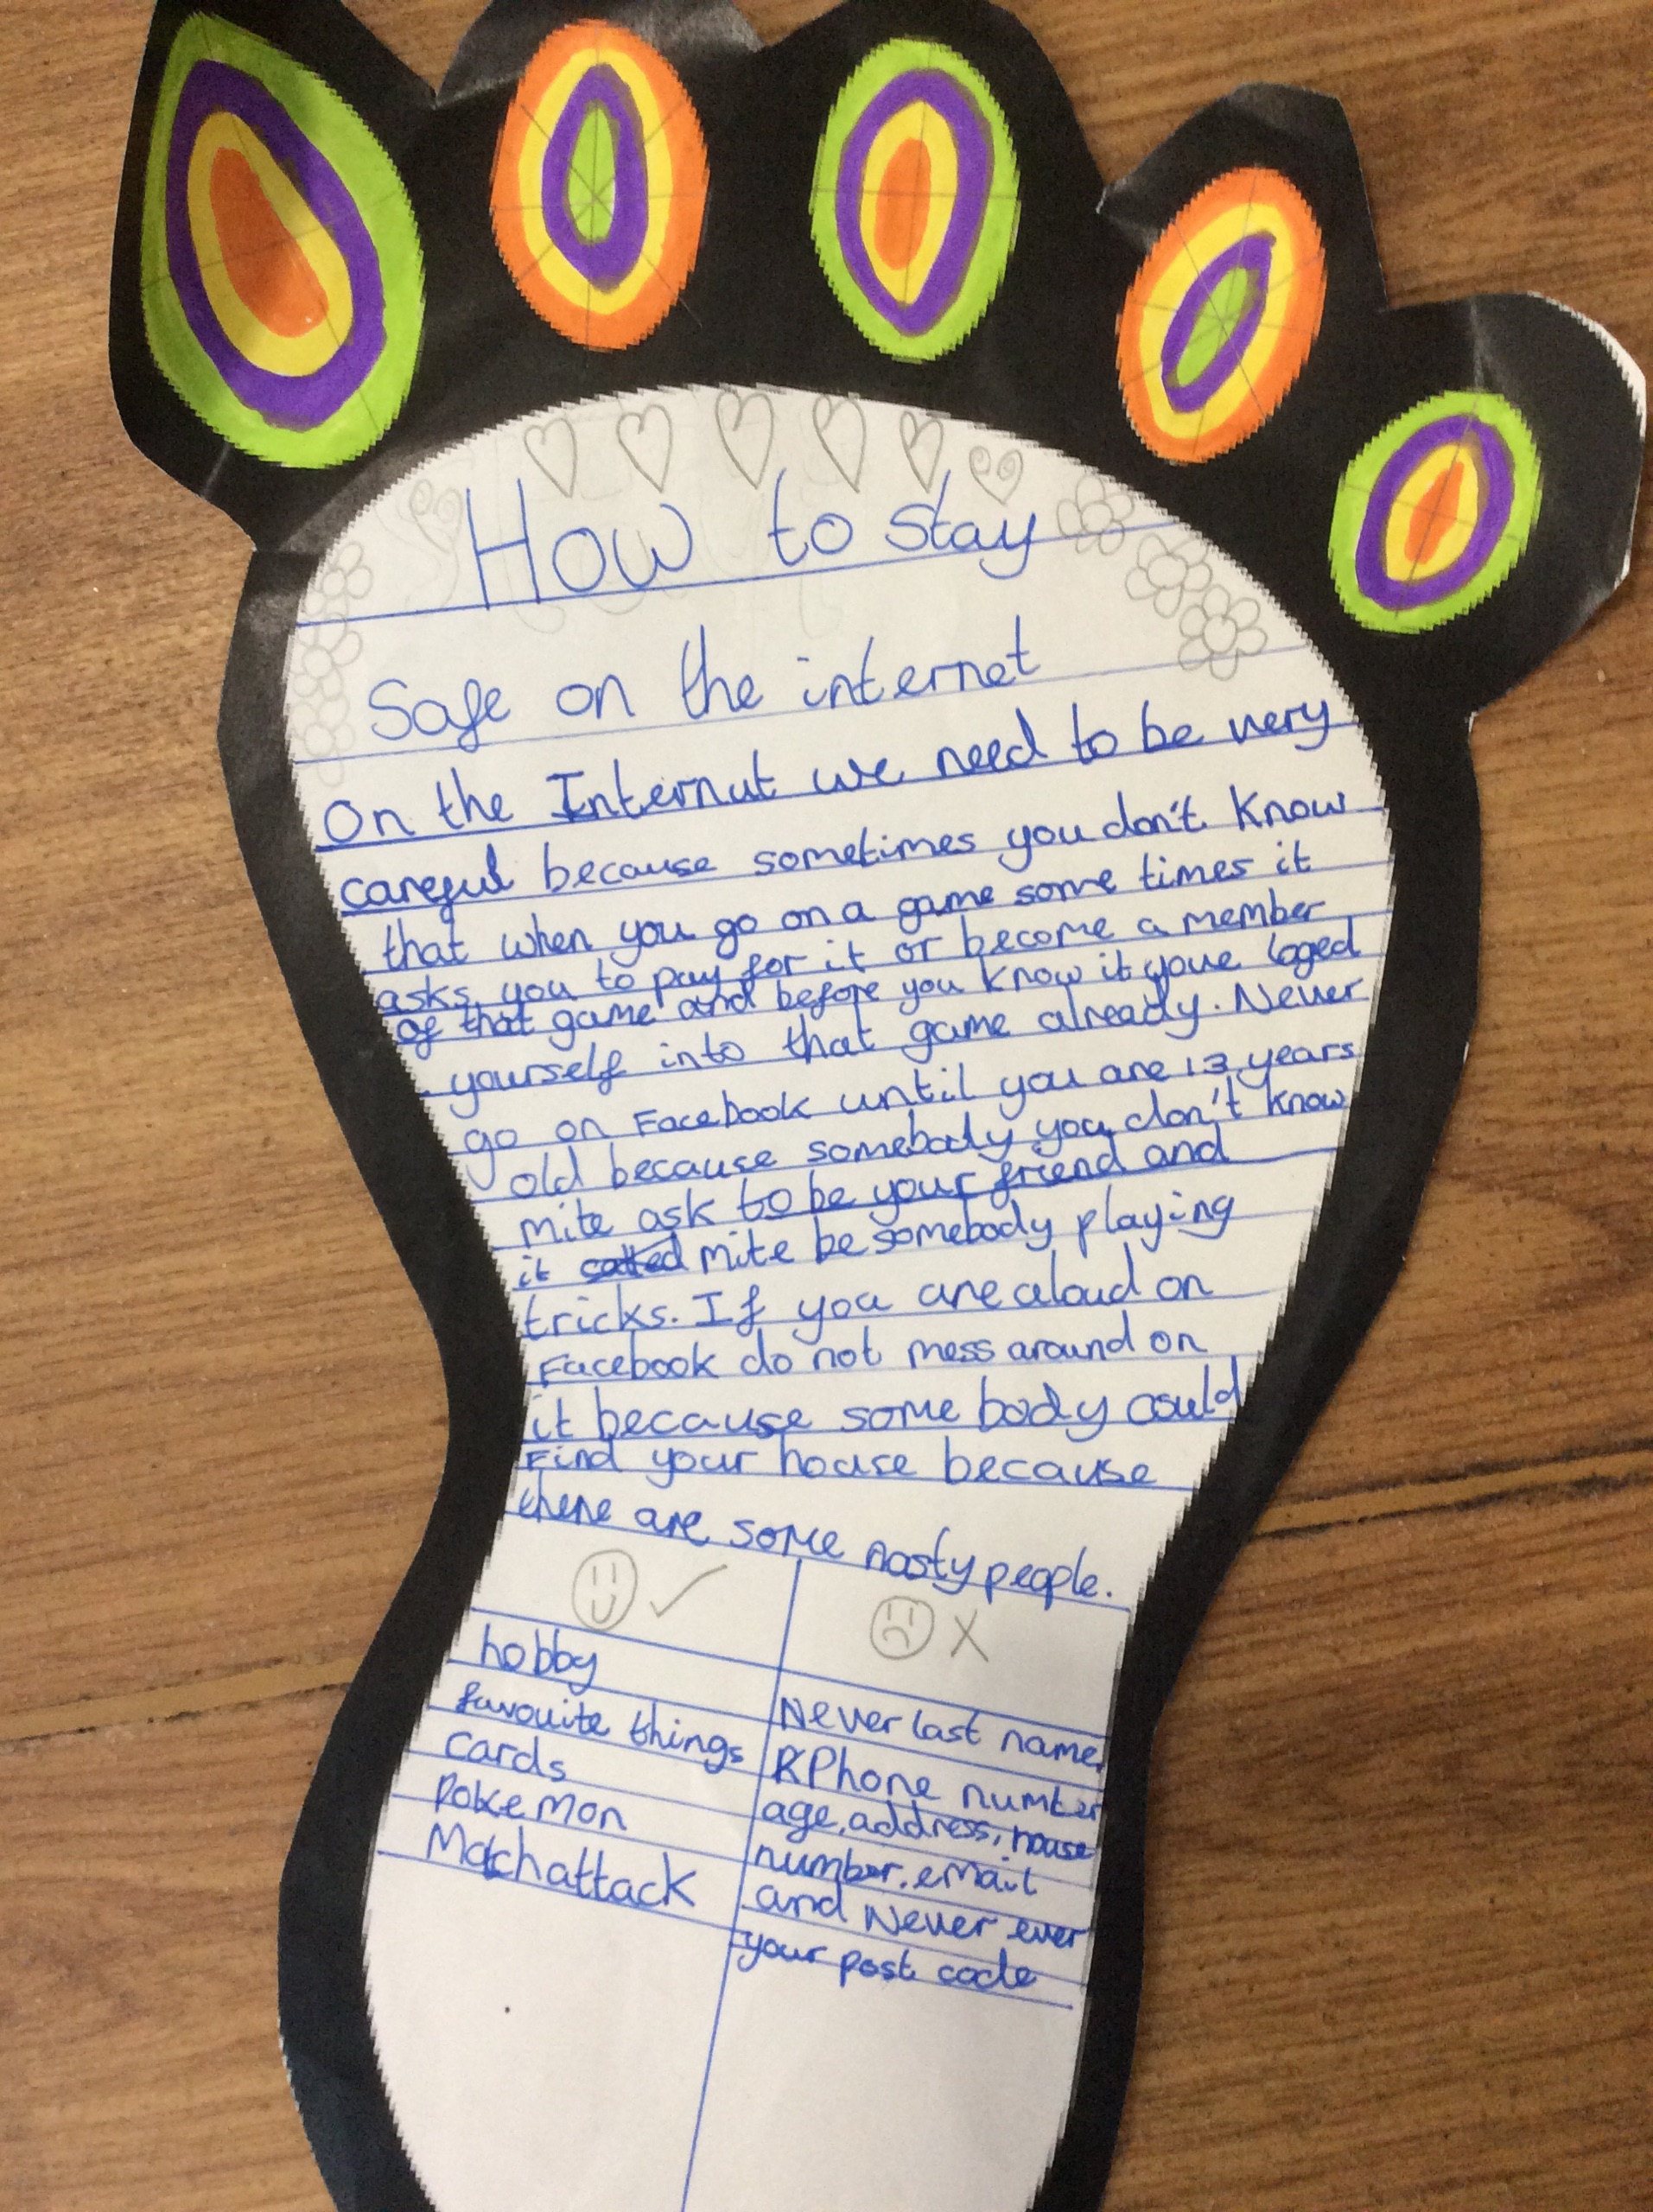 How to stay
Safe on the internet
On the Internut we need to be very
careful because sometimes you don't know
that when you go on a game some times it
asks you to pay for it or become a member
of that game and before you know it youve loged
yourself into that game already. Never
go on Facebook until you are 13 years
old because somebody you don't know
mite ask to be your friend and
it mite be somebody playing
tricks. If you are aloud on
Facebook do not mess around on
it because some body could
Find your house because
there are some nasty people.
hobby
favouite things
cards
Pokemon
Matchattack
Never last name,
Phone number
age, address, house
number, email
and Never ever
your post code